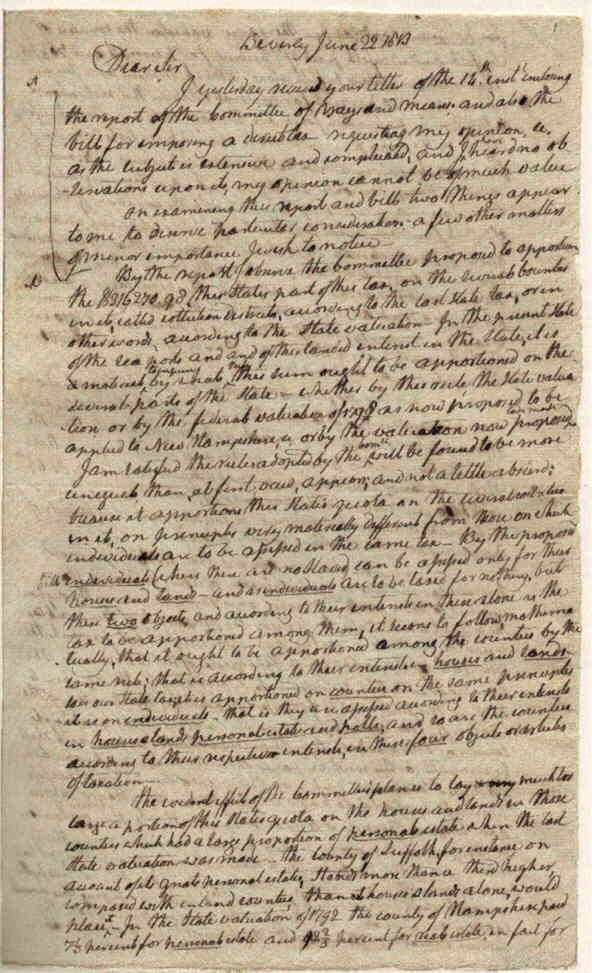 1
Beverly June 22 1813
Dear Sir
A
I yesterday received your letter of the 14th inst inclosing
the report of the Committee of Ways and means and also the
bill for imposing a direct tax requesting my opinion, &c.
as the subject is extensive and complicated, and I have heard no ob
-servations upon it, my opinion cannot be of much value
On examining this report and bill two things appear
to me to deserve particular consideration - a few other matters
of minor importance I wish to notice
A
By the report I observe the Committee proposed to apportion
the $316,270.98, this States part of this tax, on the several counties
in it, called collection districts, according to the last State tax, or in
other words, according to the State valuation - In the present State
of the sea ports and of the landed interest in the State, it is
a material enquiry by what rule this sum ought to be apportioned on the
several parts of the State - whether by this rule the State valua
tion or by the federal valuation of 1798 as now proposed to be
applied to New Hampshire, &c or by the valuation now proposed
I am satisfied the rule adopted by the Comtee will be found to be more
unequal than, at first view, appears; and not a little absurd;
because it apportions this State's quota on the several counties
in it, on principles very materially different from those on which
individuals are to be assessed in the same tax - By the proposed
individuals (where there are no slaves) can be assessed only for their
houses and land - and as individuals are to be taxed for nothing, but
these two objects, and according to their interests in these alone is the
tax to be apportioned among them, it seems to follow, mathema
tically, that it ought to be apportioned among the counties by the
same rule; that is according to their interests in houses and lands
In our State taxes it is apportioned on counties on the same principles
it is on individuals - that is they are assessed according to their interests
in houses & lands personal estate and polls, and so are the counties
according to their respective interests, in these four objects or articles
of taxation -
The evident effect of the Committee's plan is to lay much too
large a portion of this State's quota on the houses and lands in those
counties which had a large proportion of personal estate when the last
State valuation was made - the county of Suffolk, for instance, on
account of its great personal estate, stands more than a third higher,
compared with inland counties, than its houses & lands alone, would
place it - In the State valuation of 1792 the county of Hampshire paid
7⅓ percent for personal estate and 92⅔ percent for real estate, in fact for